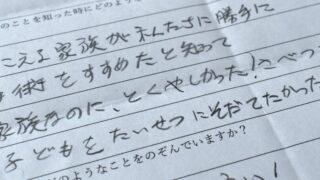 のことを知った時にどのよう
こえる家族がそんなさに勝手に
術をすすめたと知って
家族なのに、とくやしかった！さべつ
子どもをたいせつにそだてたかった
のようなことをのぞんでいますか？